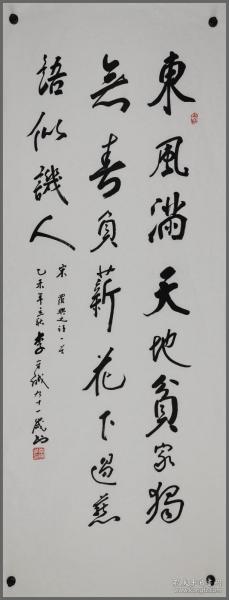 東風滿天地貧家獨
無春負薪花下過燕
語似譏人
宋 羅與之詩一首
乙未年立秋李 誠九十一歲